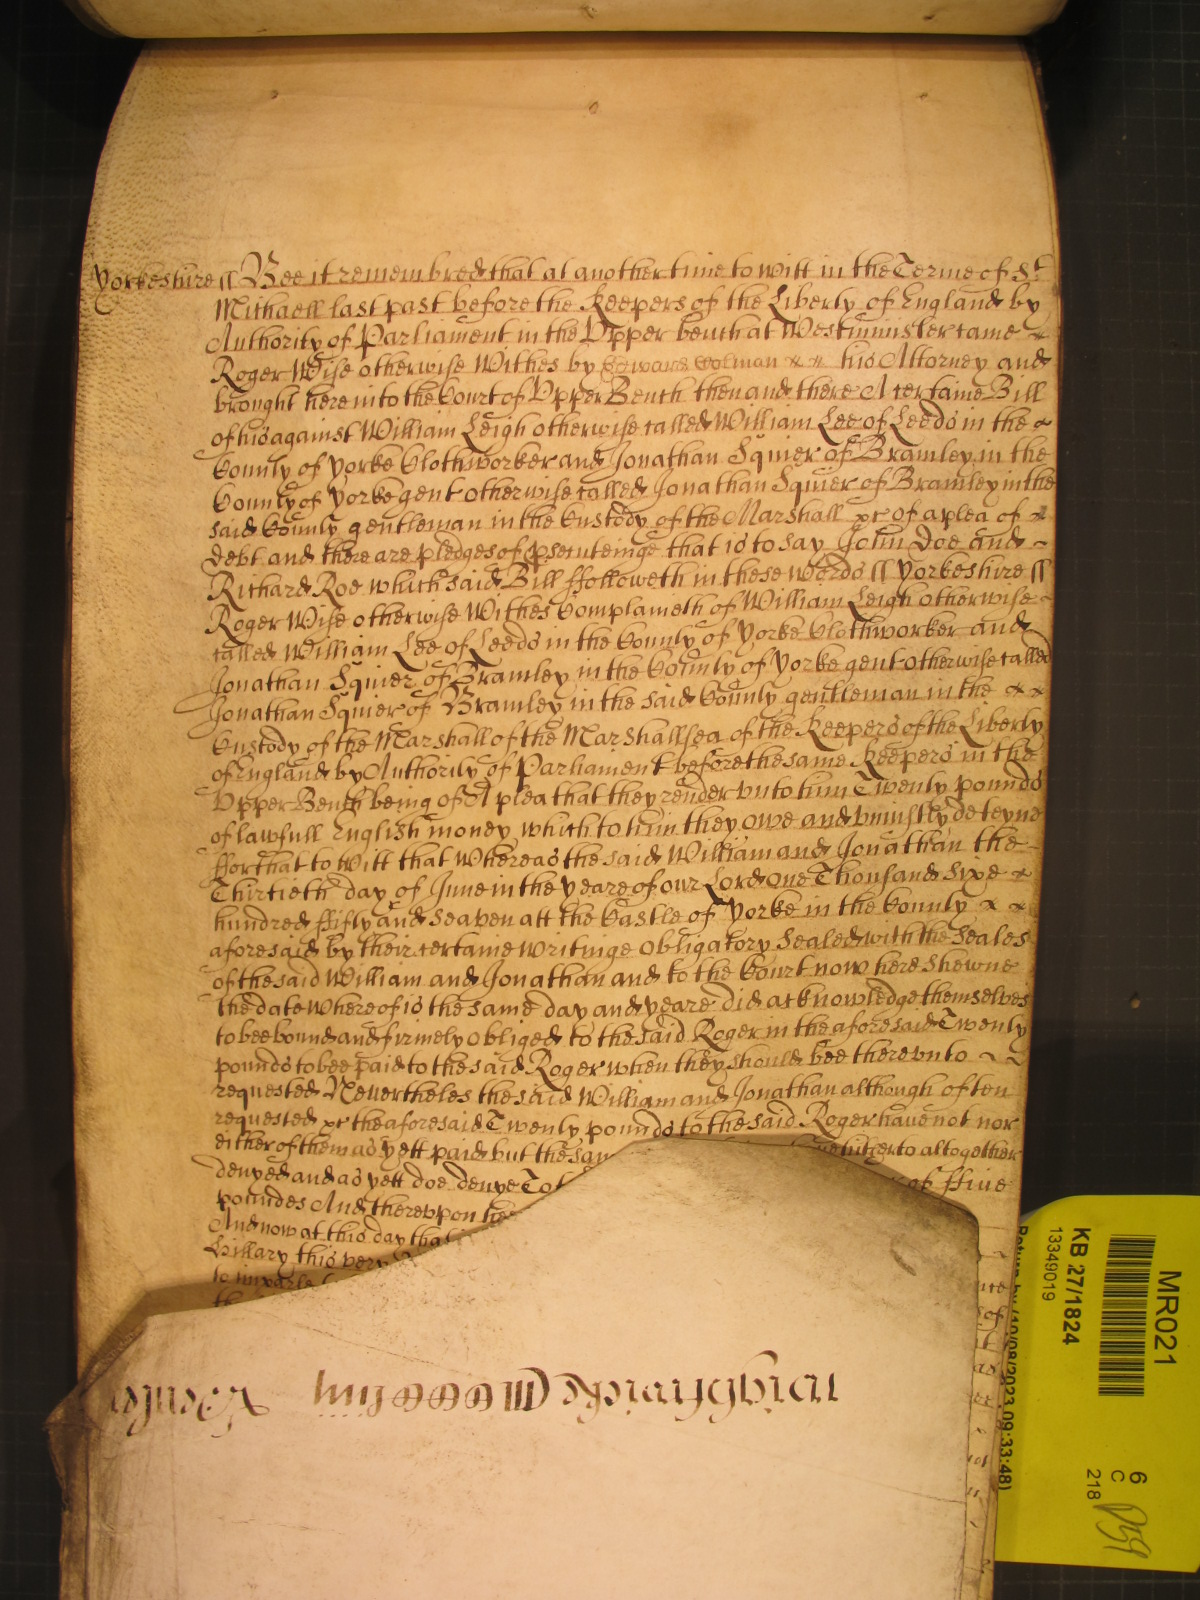 Yorkeshire ss Bee it remembred that at another time to witt in the Terme of St
Michaell last past before the Keepers of the Liberty of England by
Authority of Parliament in the Vpper bench at Westminster came
Roger Wise otherwise Withes by Edward Colman his Attorney and
brought here into the Court of Vpper Bench then and there A certaine Bill
of his against William Leigh otherwise called William Lee of Leeds in the
County of Yorke Clothworker and Jonathan Squier of Bramley in the
County of Yorke gent otherwise called Jonathan Squier of Bramley in the
said County gentleman in the Custody of the Marshall &c of a plea of
debt and there are pledges of psecuteinge that is to say John Doe and
Richard Roe which said Bill ffolloweth in these words ss Yorkeshire ss
Roger Wise otherwise Withes Complaineth of William Leigh otherwise
called William Lee of Leeds in the County of Yorke Clothworker and
Jonathan Squier of Bramley in the County of Yorke gent otherwise called
Jonathan Squier of Bramley in the said County gentleman in the
Custody of the Marshall of the Marshallsea of the Keepers of the Liberty
of England by Authority of Parliament before the same Keepers in the
Vpper Bench being of A plea that they render vnto him Twenty pounds
of lawfull English money which to him they owe and vniustly deteyne
ffor that to witt that Whereas the said William and Jonathan the
Thirtieth day of June in the yeare of our Lord One Thousand Sixe
hundred ffifty and seaven att the Castle of Yorke in the County
aforesaid by their certaine writinge Obligatory Sealed with the Seales
of the said William and Jonathan and to the Court now here shewne
the date whereof is the same day and yeare did acknowledge themselves
to bee bound and firmely obliged to the said Roger in the aforesaid Twenty
pounds to bee paid to the said Roger when they should bee therevnto
requested Nevertheles the said William and Jonathan although often
requested &c the aforesaid Twenty pounds to the said Roger haue not nor
either of them as yett paid but the same hitherto altogether
denyed and as yett doe denye To of ffiue
poundes And therevpon hee
And now at this day that
Hillary this very
to imparle
KB 27/1824
13349019
MR021
Return by (10/08/2023 09:33:48)
6
C
218